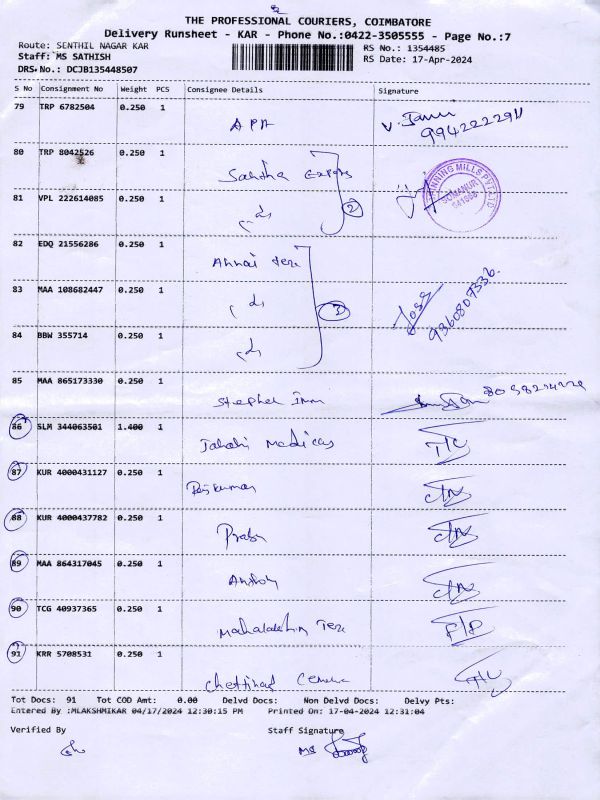 THE PROFESSIONAL COURIERS, COIMBATORE
Delivery Runsheet - KAR - Phone No.:0422-3505555 - Page No.:7
Route: SENTHIL NAGAR KAR
RS No.: 1354485
Staff: MS SATHISH
RS Date: 17-Apr-2024
DRS No.: DCJB135448507
S No Consignment No Weight PCS Consignee Details Signature
79 TRP 6782504 0.250 1
80 TRP 8042526 0.250 1
SPINNING MILLS PVT LTD
81 VPL 222614085 0.250 1 2
82 EDQ 21556286 0.250 1 Annai Tex
83 MAA 108682447 0.250 1 3 9360807336
84 BBW 355714 0.250 1
85 MAA 865173330 0.250 1
86 SLM 344063501 1.400 1
87 KUR 4000431127 0.250 1 Rajkumar
88 KUR 4000437782 0.250 1 Prabu
89 MAA 864317045 0.250 1 Antony
90 TCG 40937365 0.250 1 Mahalakshmi Tex
91 KRR 5708531 0.250 1 Chettinad
Tot Docs: 91 Tot COD Amt: 0.00 Delvd Docs: Non Delvd Docs: Delvy Pts:
Entered By :MLAKSHMIKAR 04/17/2024 12:30:15 PM Printed On: 17-04-2024 12:31:04
Verified By Staff Signature
MS